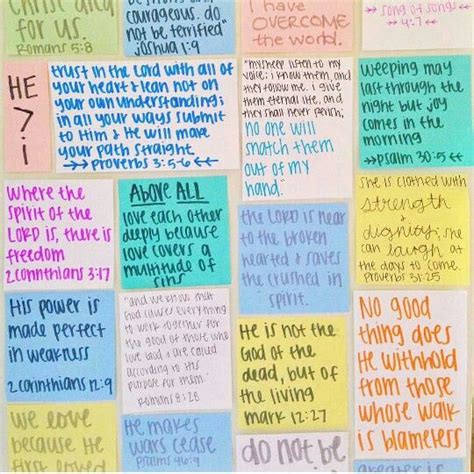 Christ died
for us.
Romans 5:8
courageous. do
not be terrified"
Joshua 1:9
I have
OVERCOME
the world.
song of songs
4:7
HE
>
i
trust in the Lord with all of
your heart & lean not on
your own understanding;
in all your ways submit
to Him & He will make
your path straight
Proverbs 3:5-6
"my sheep listen to my
voice; i know them, and
they follow me. I give
them eternal life, and
they shall never perish;
no one will
snatch them
out of my
hand."
weeping may
last through the
night but joy
comes in the
morning
Psalm 30:5
Where the
spirit of the
LORD is, there is
freedom
2 corinthians 3:17
ABOVE ALL
love each other
deeply because
love covers a
multitude of
sins
the LORD is near
to the broken
hearted & saves
the crushed in
spirit.
she is clothed with
strength
&
dignity; she
can laugh at
the days to come.
Proverbs 31:25
His power is
made perfect
in weakness
2 corinthians 12:9
"and we know that
God causes everything
to work together for
the good of those who
love God & are called
according to His
purpose for them."
Romans 8:28
He is not the
God of the
dead, but of
the living
mark 12:27
No good
thing does
He withhold
from those
whose walk
is blameless
we love
because He
first loved
He makes
wars cease
Psalms 46:9
do not be